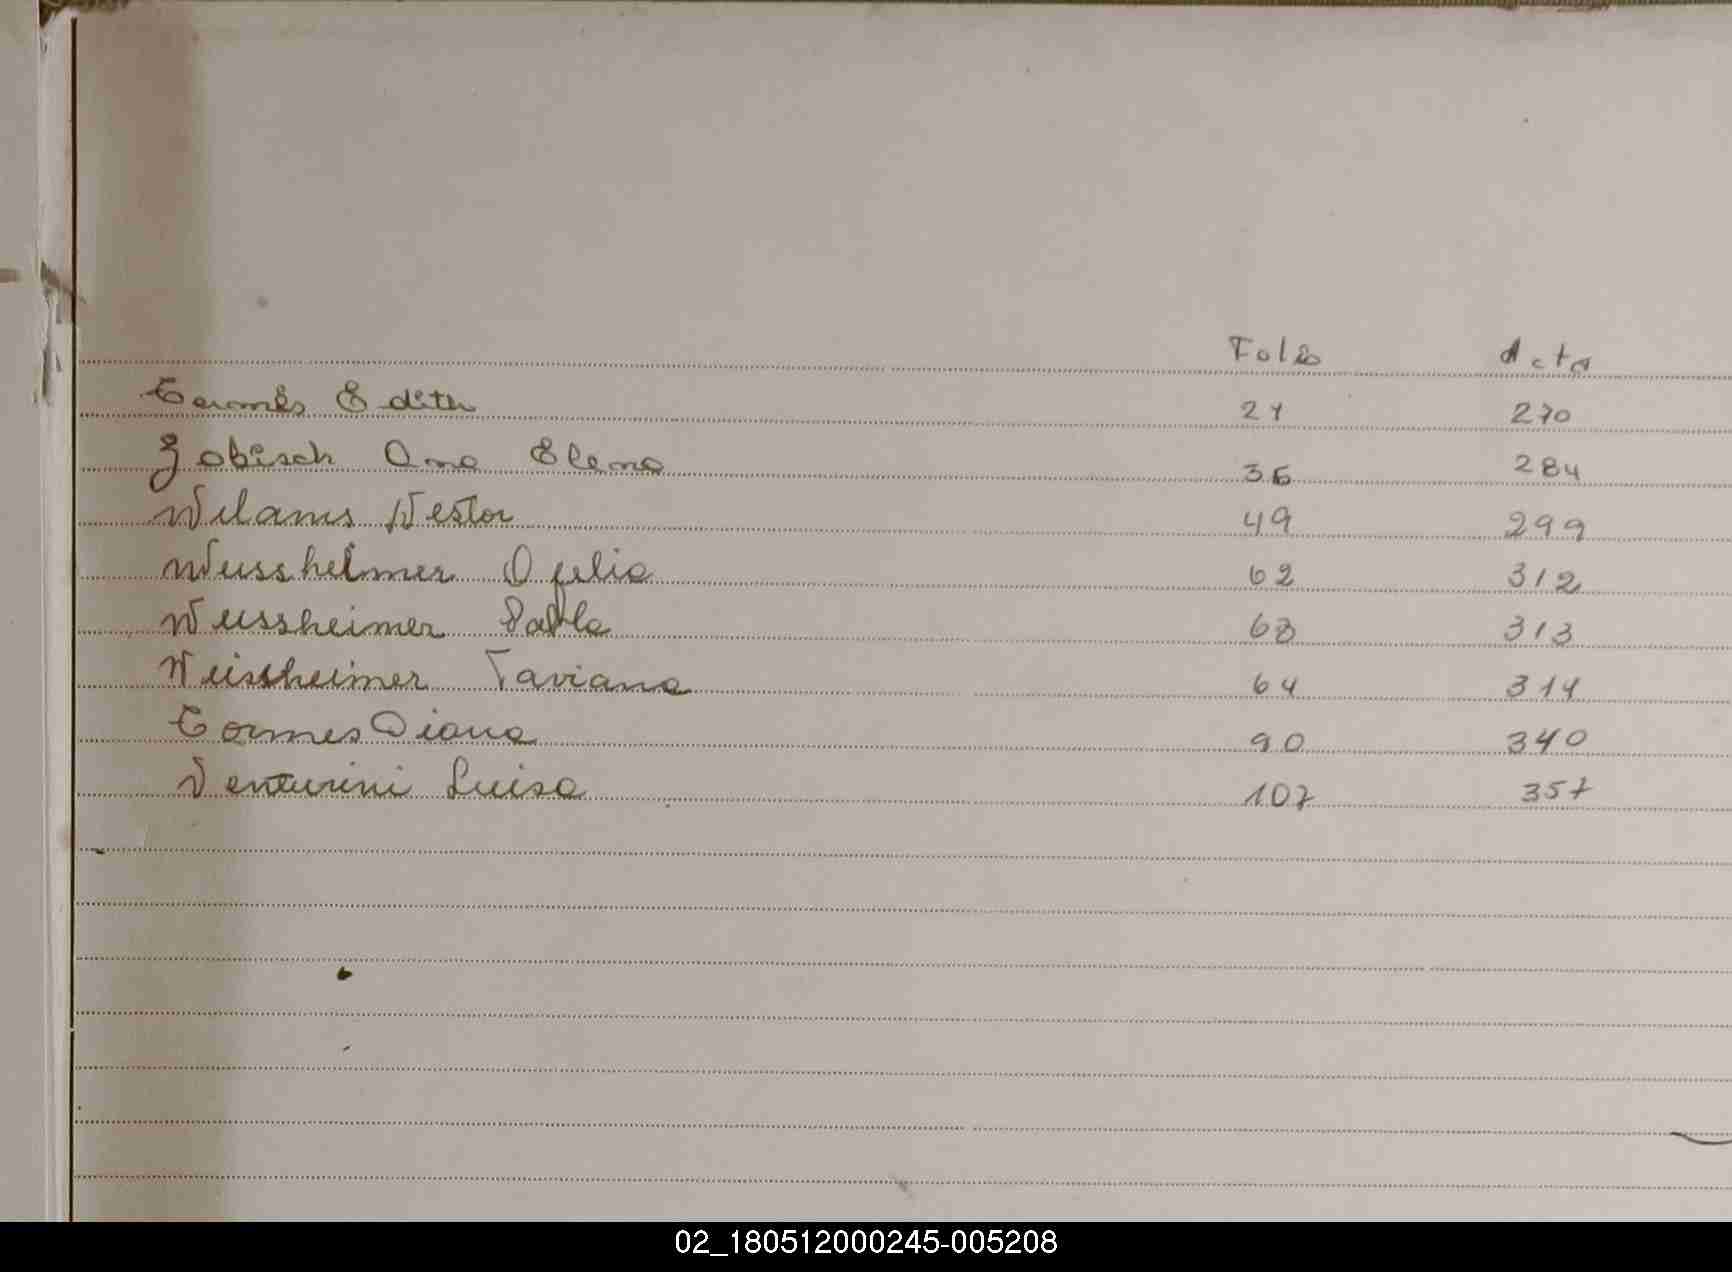 Folio Acta
Edith 21 270
Zobisch Ana Elena 36 284
Wilams Nestor 49 299
Weissheimer Ofelia 62 312
Weissheimer Pabla 63 313
Weissheimer Taviana 64 314
Tormes Diana 90 340
Venturini Luisa 107 357
02_180512000245-005208